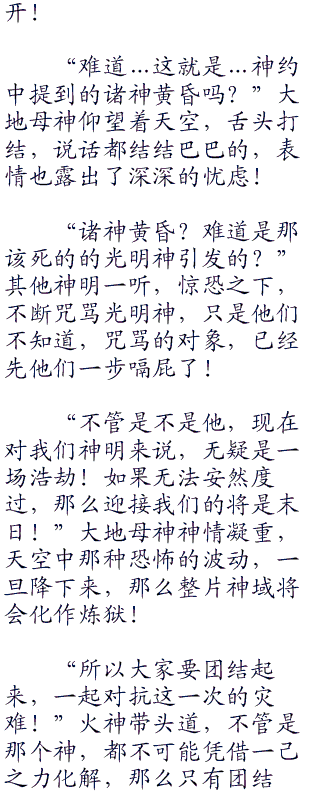 开！
“难道…这就是…神约
中提到的诸神黄昏吗？”大
地母神仰望着天空，舌头打
结，说话都结结巴巴的，表
情也露出了深深的忧虑！
“诸神黄昏？难道是那
该死的的光明神引发的？”
其他神明一听，惊恐之下，
不断咒骂光明神，只是他们
不知道，咒骂的对象，已经
先他们一步嗝屁了！
“不管是不是他，现在
对我们神明来说，无疑是一
场浩劫！如果无法安然度
过，那么迎接我们的将是末
日！”大地母神神情凝重，
天空中那种恐怖的波动，一
旦降下来，那么整片神域将
会化作炼狱！
“所以大家要团结起
来，一起对抗这一次的灾
难！”火神带头道，不管是
那个神，都不可能凭借一己
之力化解，那么只有团结